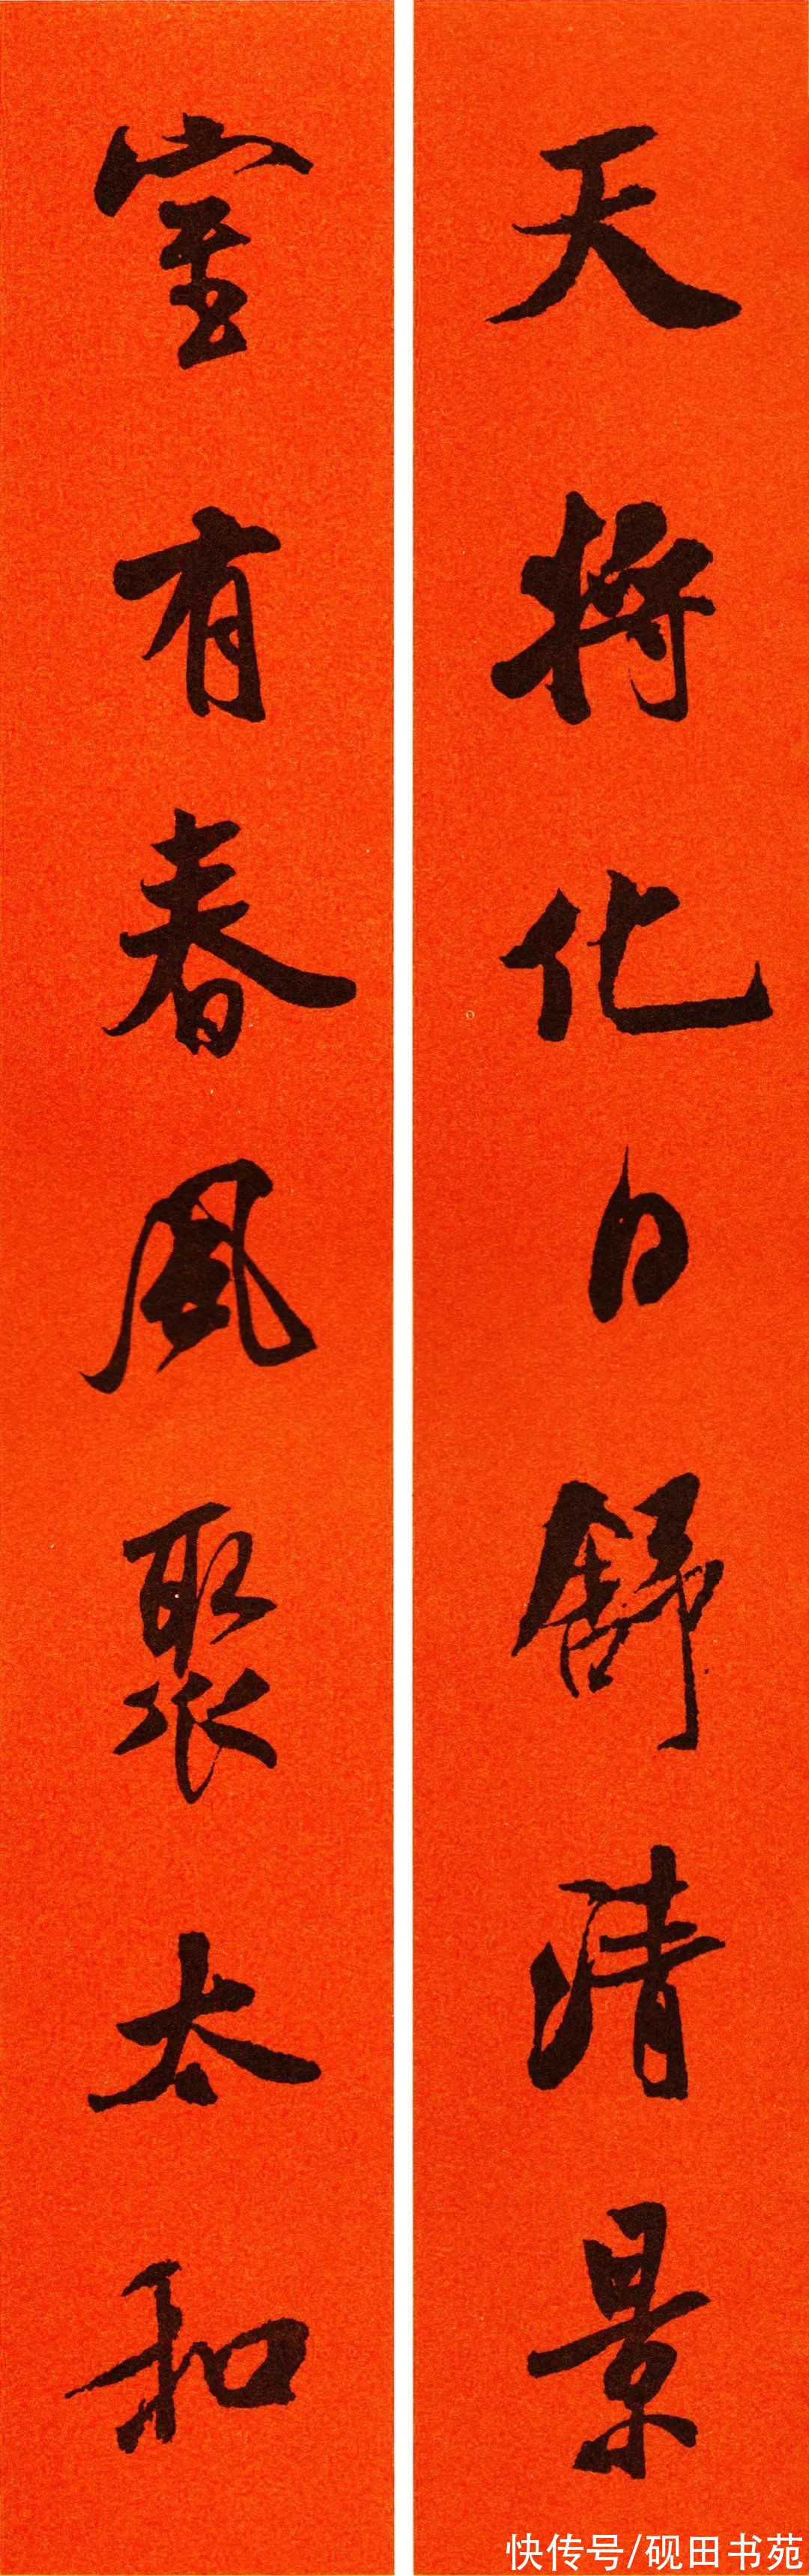 天将化日舒清景
室有春风聚太和
快传号/砚田书苑